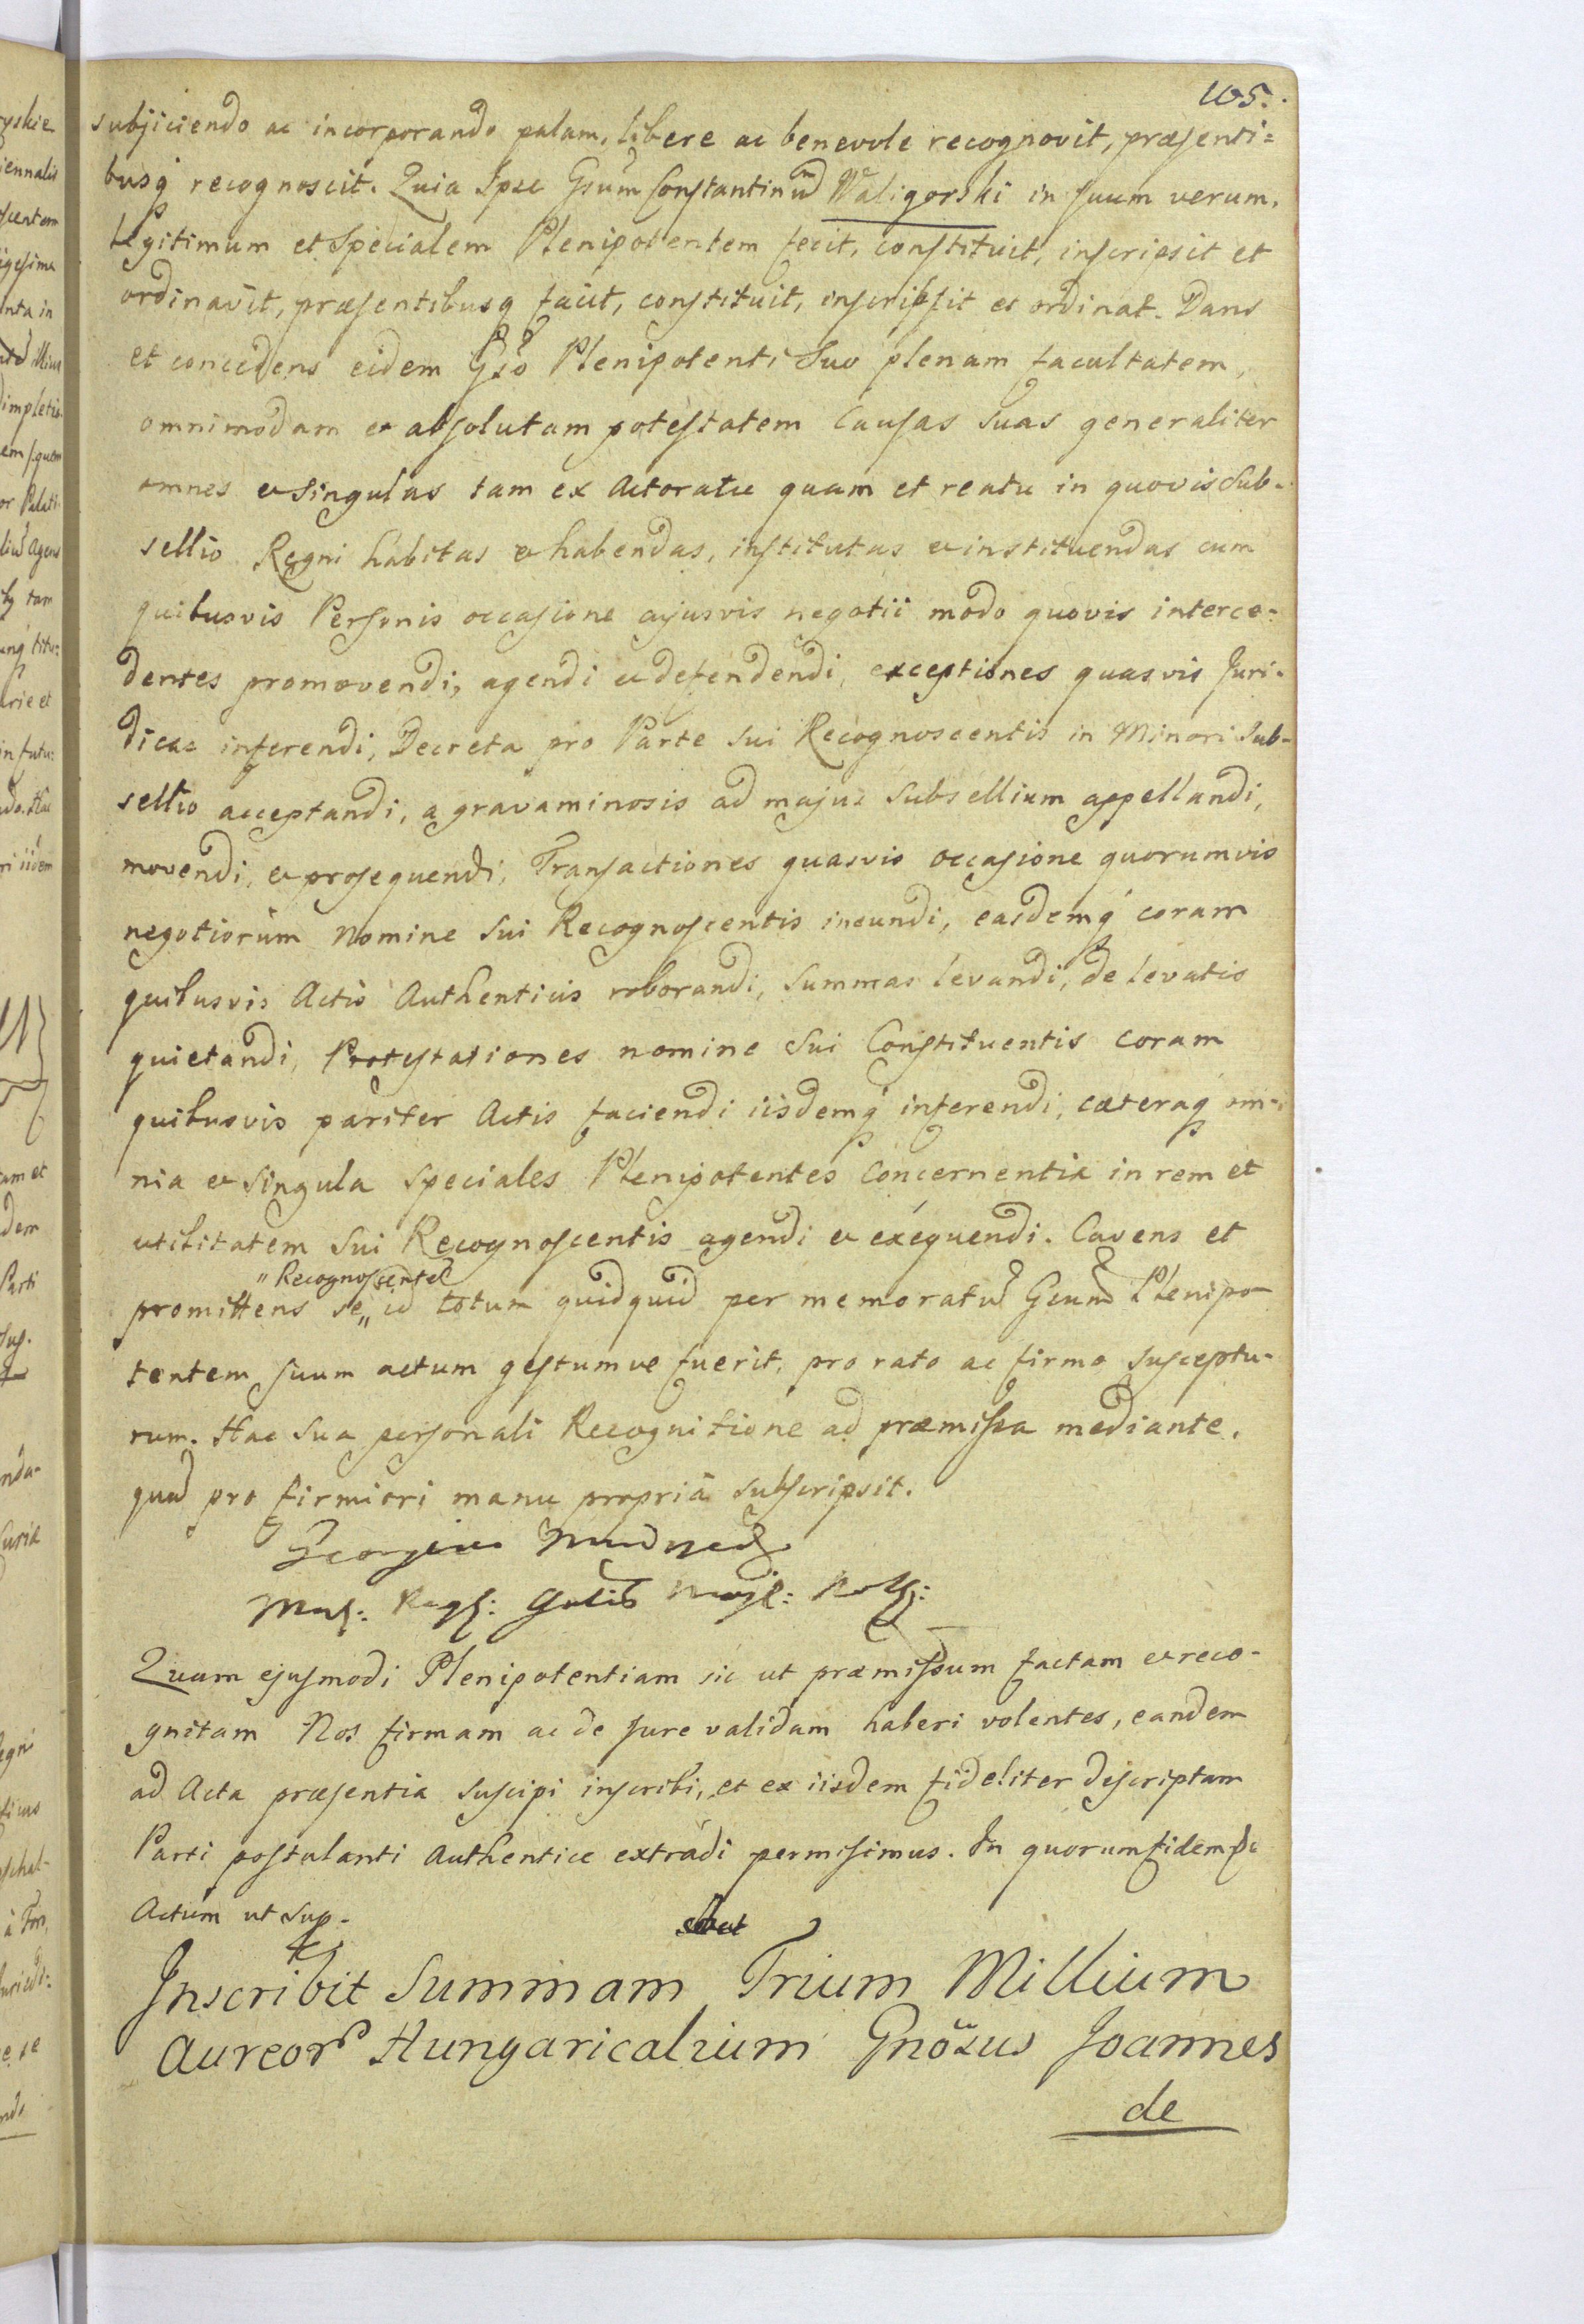 105.
subjiciendo ac incorporando palam, libere ac benevole recognovit, præsenti=
busq recognoscit. Quia Ipse Gsum Constantinum Waligorski in suum verum,
legitimum et Specialem Plenipotentem fecit, constituit, inscripsit et
ordinavit, præsentibusq facit, constituit, inscribsit et ordinat. Dans
et concedens eidem Gso Plenipotenti Suo plenam facultatem,
omnimodam et absolutam potestatem Causas suas generaliter
omnes et singulas tam ex Actoratu quam et reatu in quovis Sub-
sellio Regni habitas et habendas, institutas et instituendas cum
quibusvis Personis occasione cujusvis negotii modo quovis interce-
dentes promovendi, agendi et defendendi, exceptiones quasvis Juri-
dicas inferendi, Decreta pro Parte sui Recognoscentis in Minori Sub-
sellio acceptandi, a gravaminosis ad majus Subsellium appellandi,
movendi, et prosequendi, Transactiones quasvis occasione quorumvis
negotiorum Nomine Sui Recognoscentis ineundi, easdemq coram
quibusvis Actis Authenticis roborandi, Summas levandi, de levatis
quietandi, Protestationes nomine Sui Constituentis coram
quibusvis pariter Actis faciendi iisdemq inferendi, cæteraq om-
nia et singula speciales Plenipotentes concernentia in rem et
utilitatem Sui Recognoscentis agendi et exequendi. Cavens et
"Recognoscentem
promittens se " id totum quidquid per memoratum Gsum Plenipo-
tentem suum actum gestumve fuerit, pro rato ac firmo susceptu-
rum. Hac Sua personali Recognitione ad præmissa mediante,
quod pro firmiori manu propriâ subscripsit.
Georgius
Quam ejusmodi Plenipotentiam sic ut præmissum factam et reco-
gnitam Nos firmam ac de Jure validam haberi volentes, eandem
ad Acta præsentia suscipi inscribi, et ex iisdem fideliter descriptam
Parti postulanti Authentice extradi permisimus. In quorum fidem &c
Actum ut sup.
Inscribit Summam Trium Millium
Aureor Hungaricalium Gnosus Joannes
de